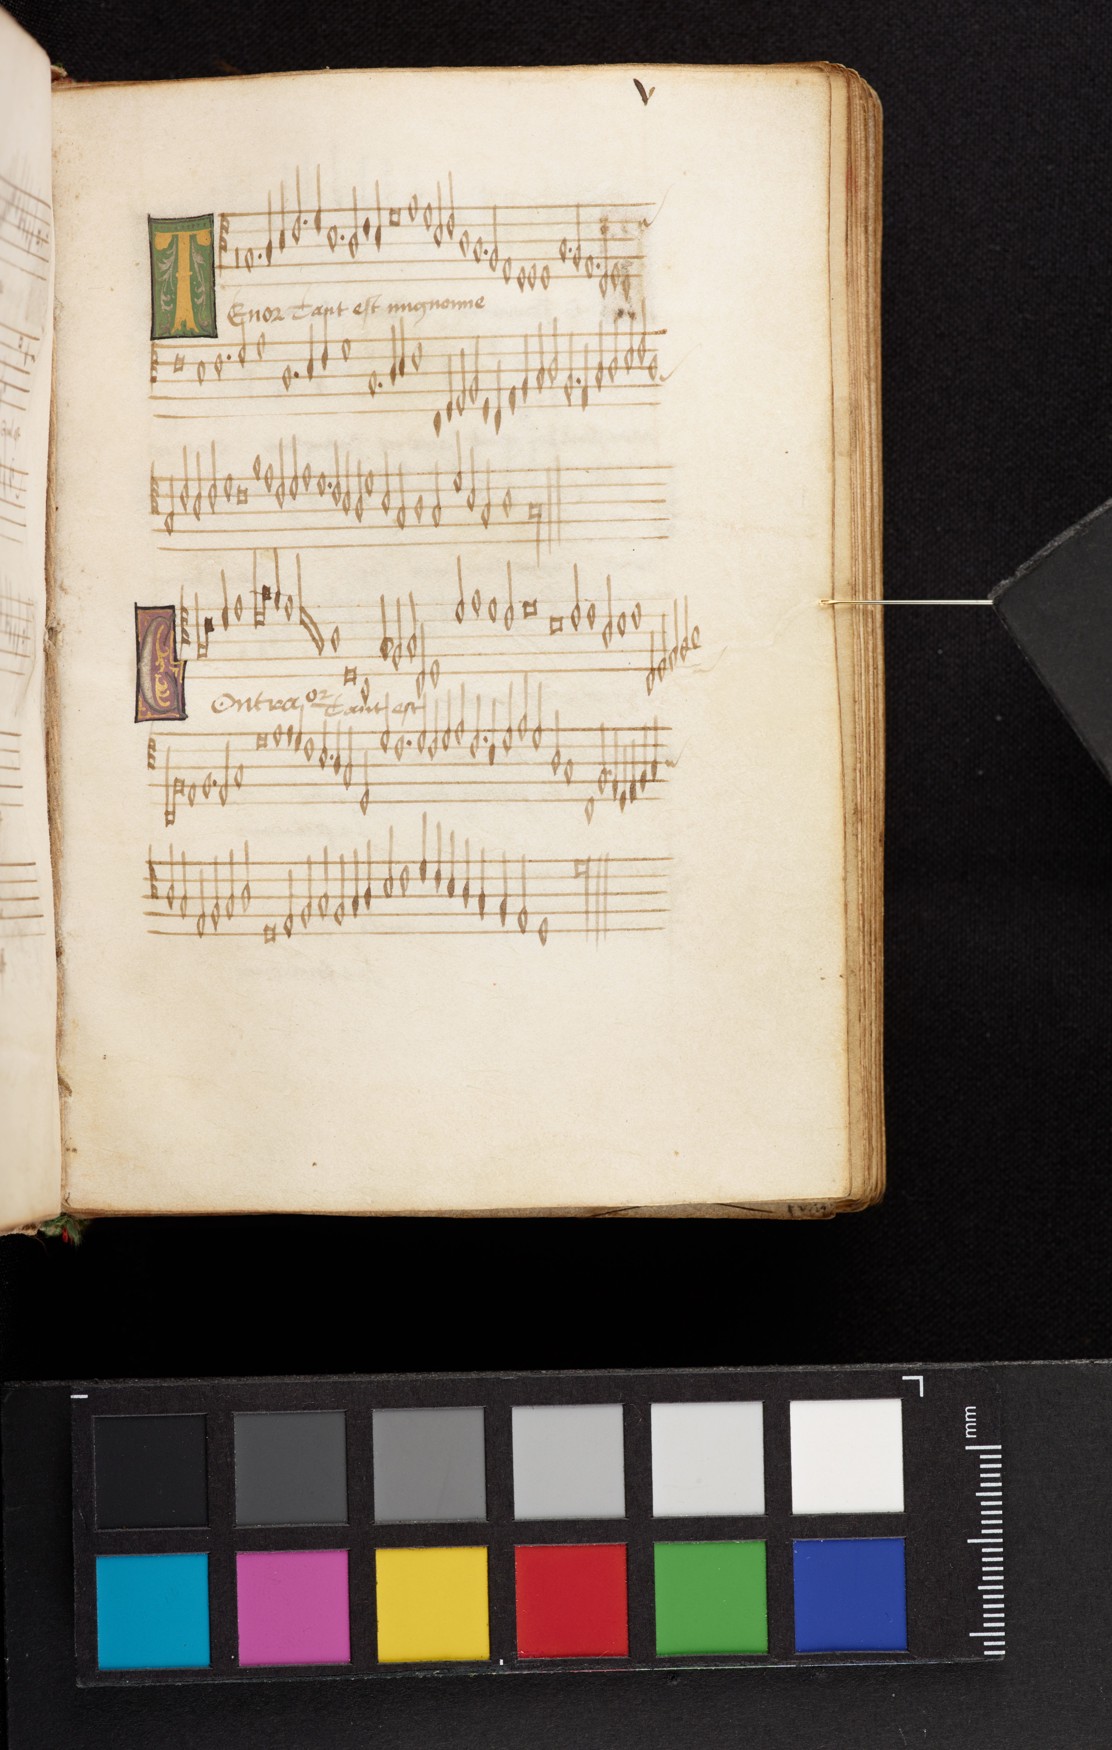 v
TEnor Tant est mignonne
COntra or Tant est
mm